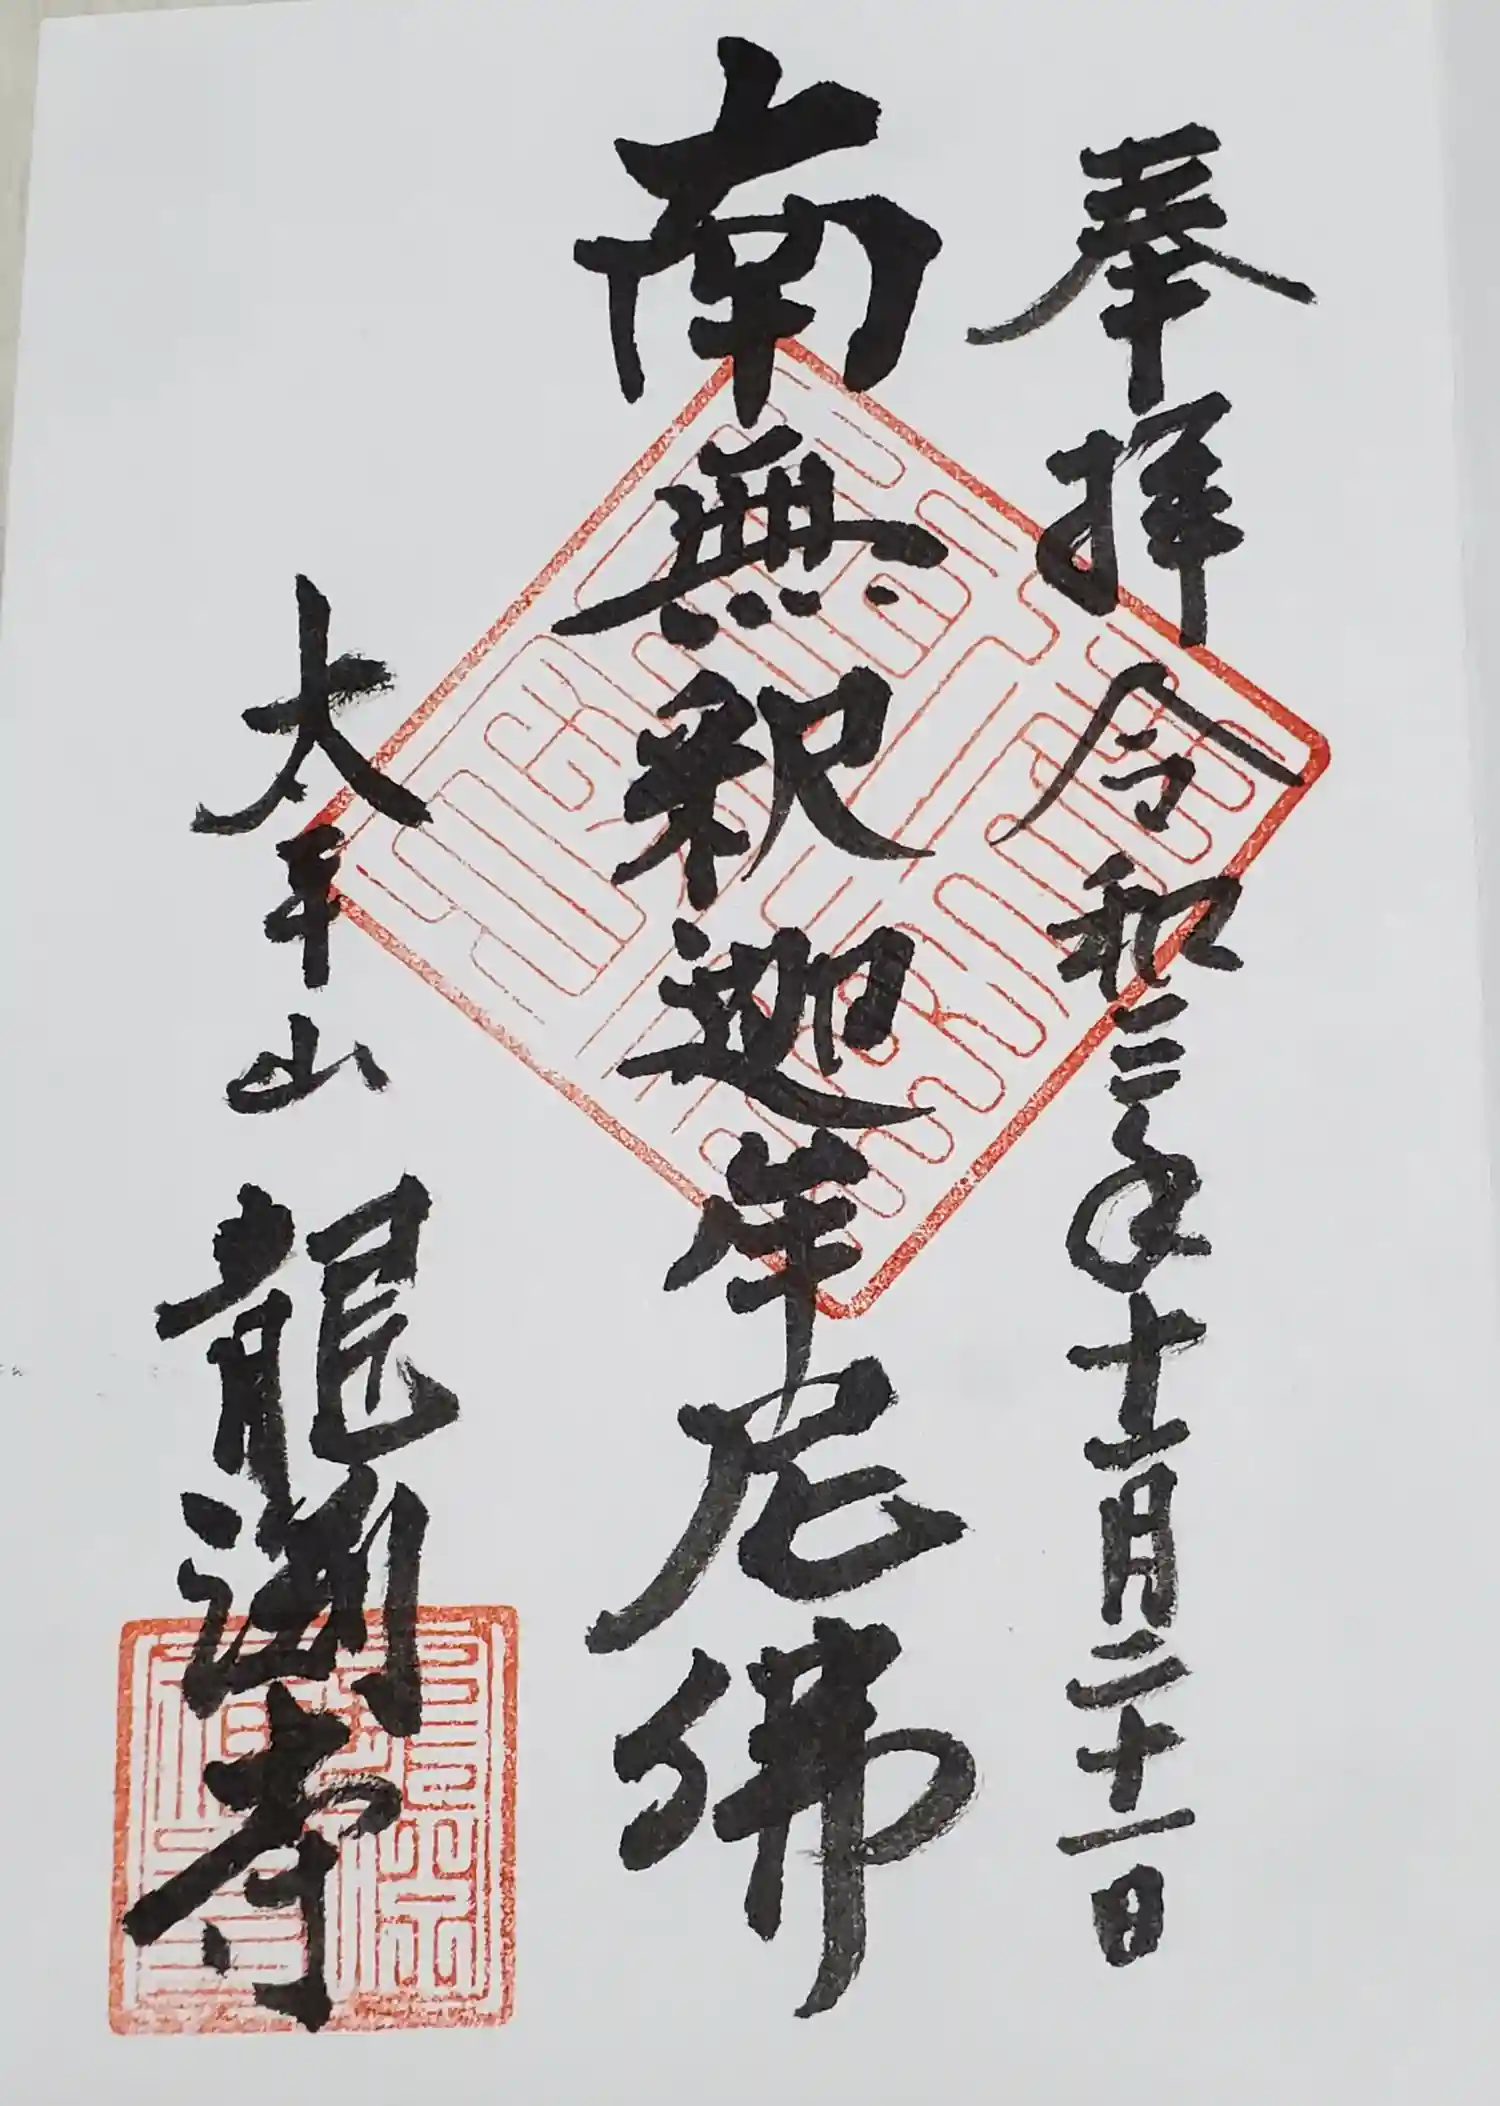 奉拝 令和三年十一月二十一日
南無釈迦牟尼佛
太平山 龍渕寺